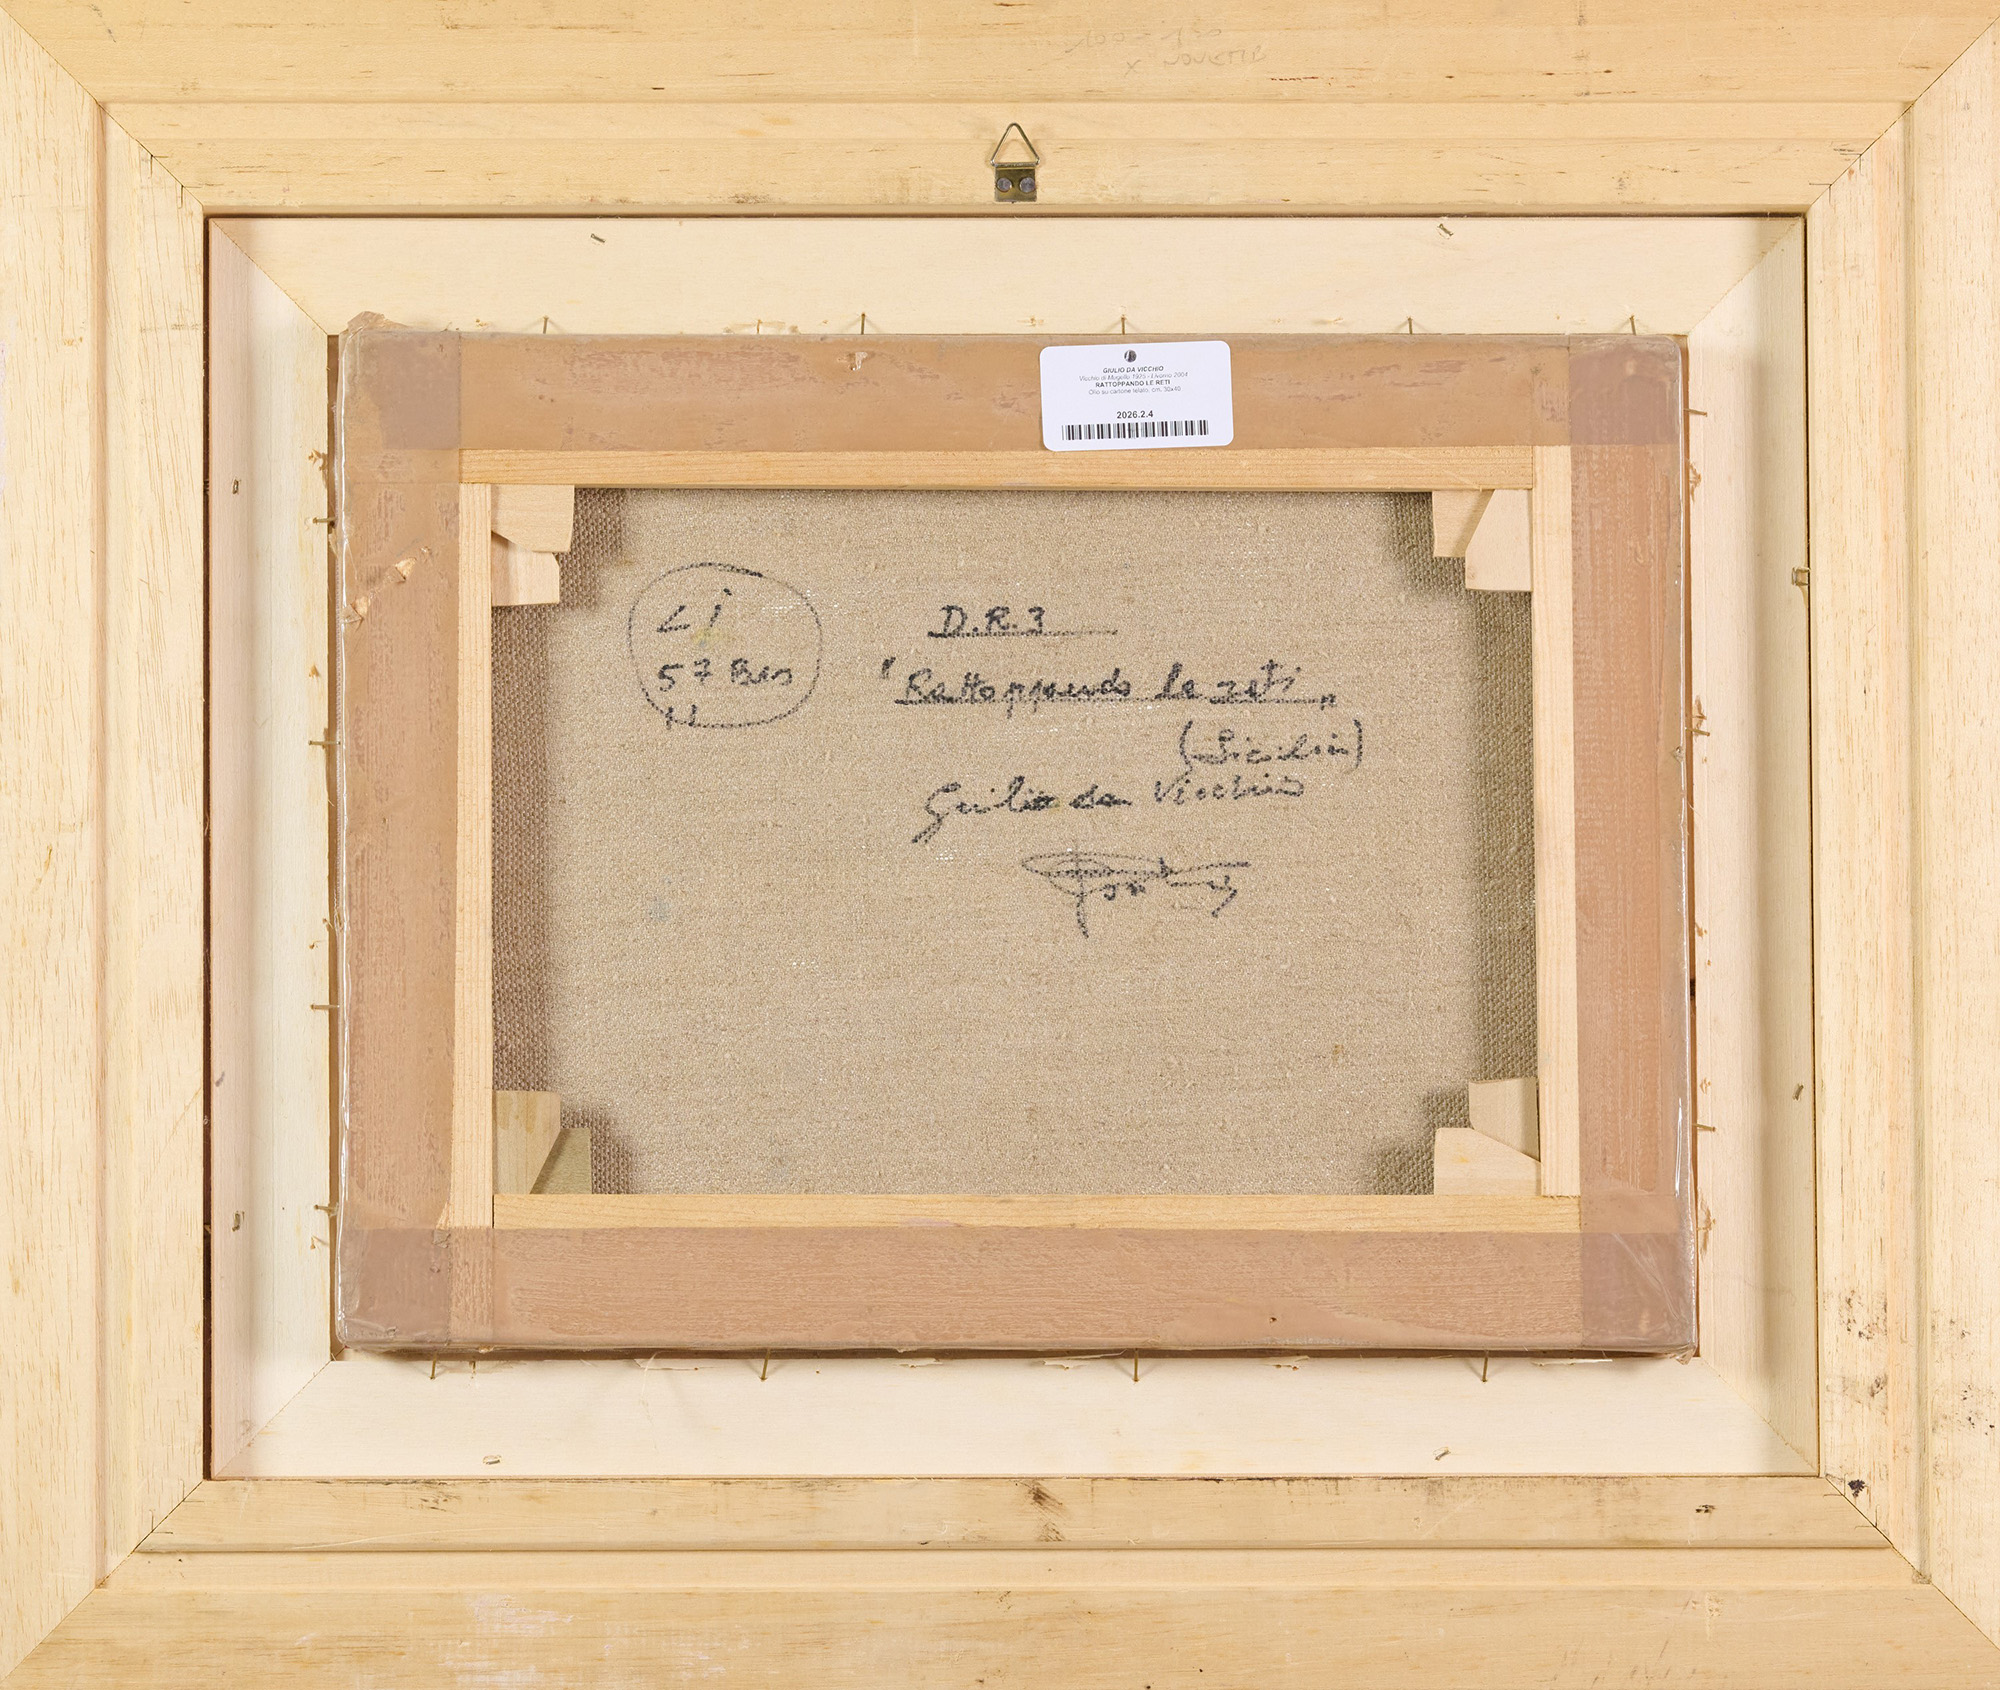 GIULIO DA VICCHIO
Vicchio di Mugello 1925 - Livorno 2004
RATTOPPANDO LE RETI
Olio su cartone telato, cm. 30x40
2026.2.4
Li
57 Bis
D.R.3
"Rattoppando le reti"
(Sicilia)
Giulio da Vicchio